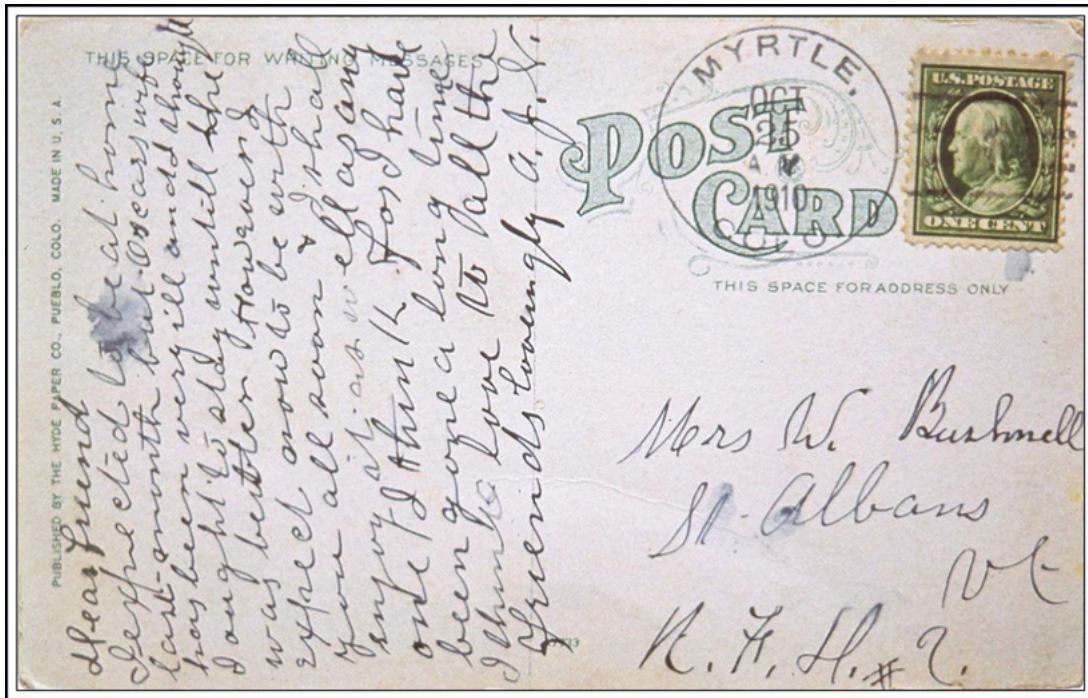 THIS SPACE FOR WRITING MESSAGES
PUBLISHED BY THE HYDE PAPER CO., PUEBLO, COLO. MADE IN U. S. A.
Dear friend
I expected to be at home
last month but Oscars wife
has been very ill and I thought
I ought to stay untill she
was better However I
expect now to be with
you all soon & I shall
enjoy it as well as any
one I think for I have
been gone a long time
I think love to all the
friends lovingly A. J. N.
POST
CARD
MYRTLE,
OCT
25
A M
1910
COLO
U.S. POSTAGE
ONE CENT
THIS SPACE FOR ADDRESS ONLY
Mrs W. Bushnell
St. Albans
Vt